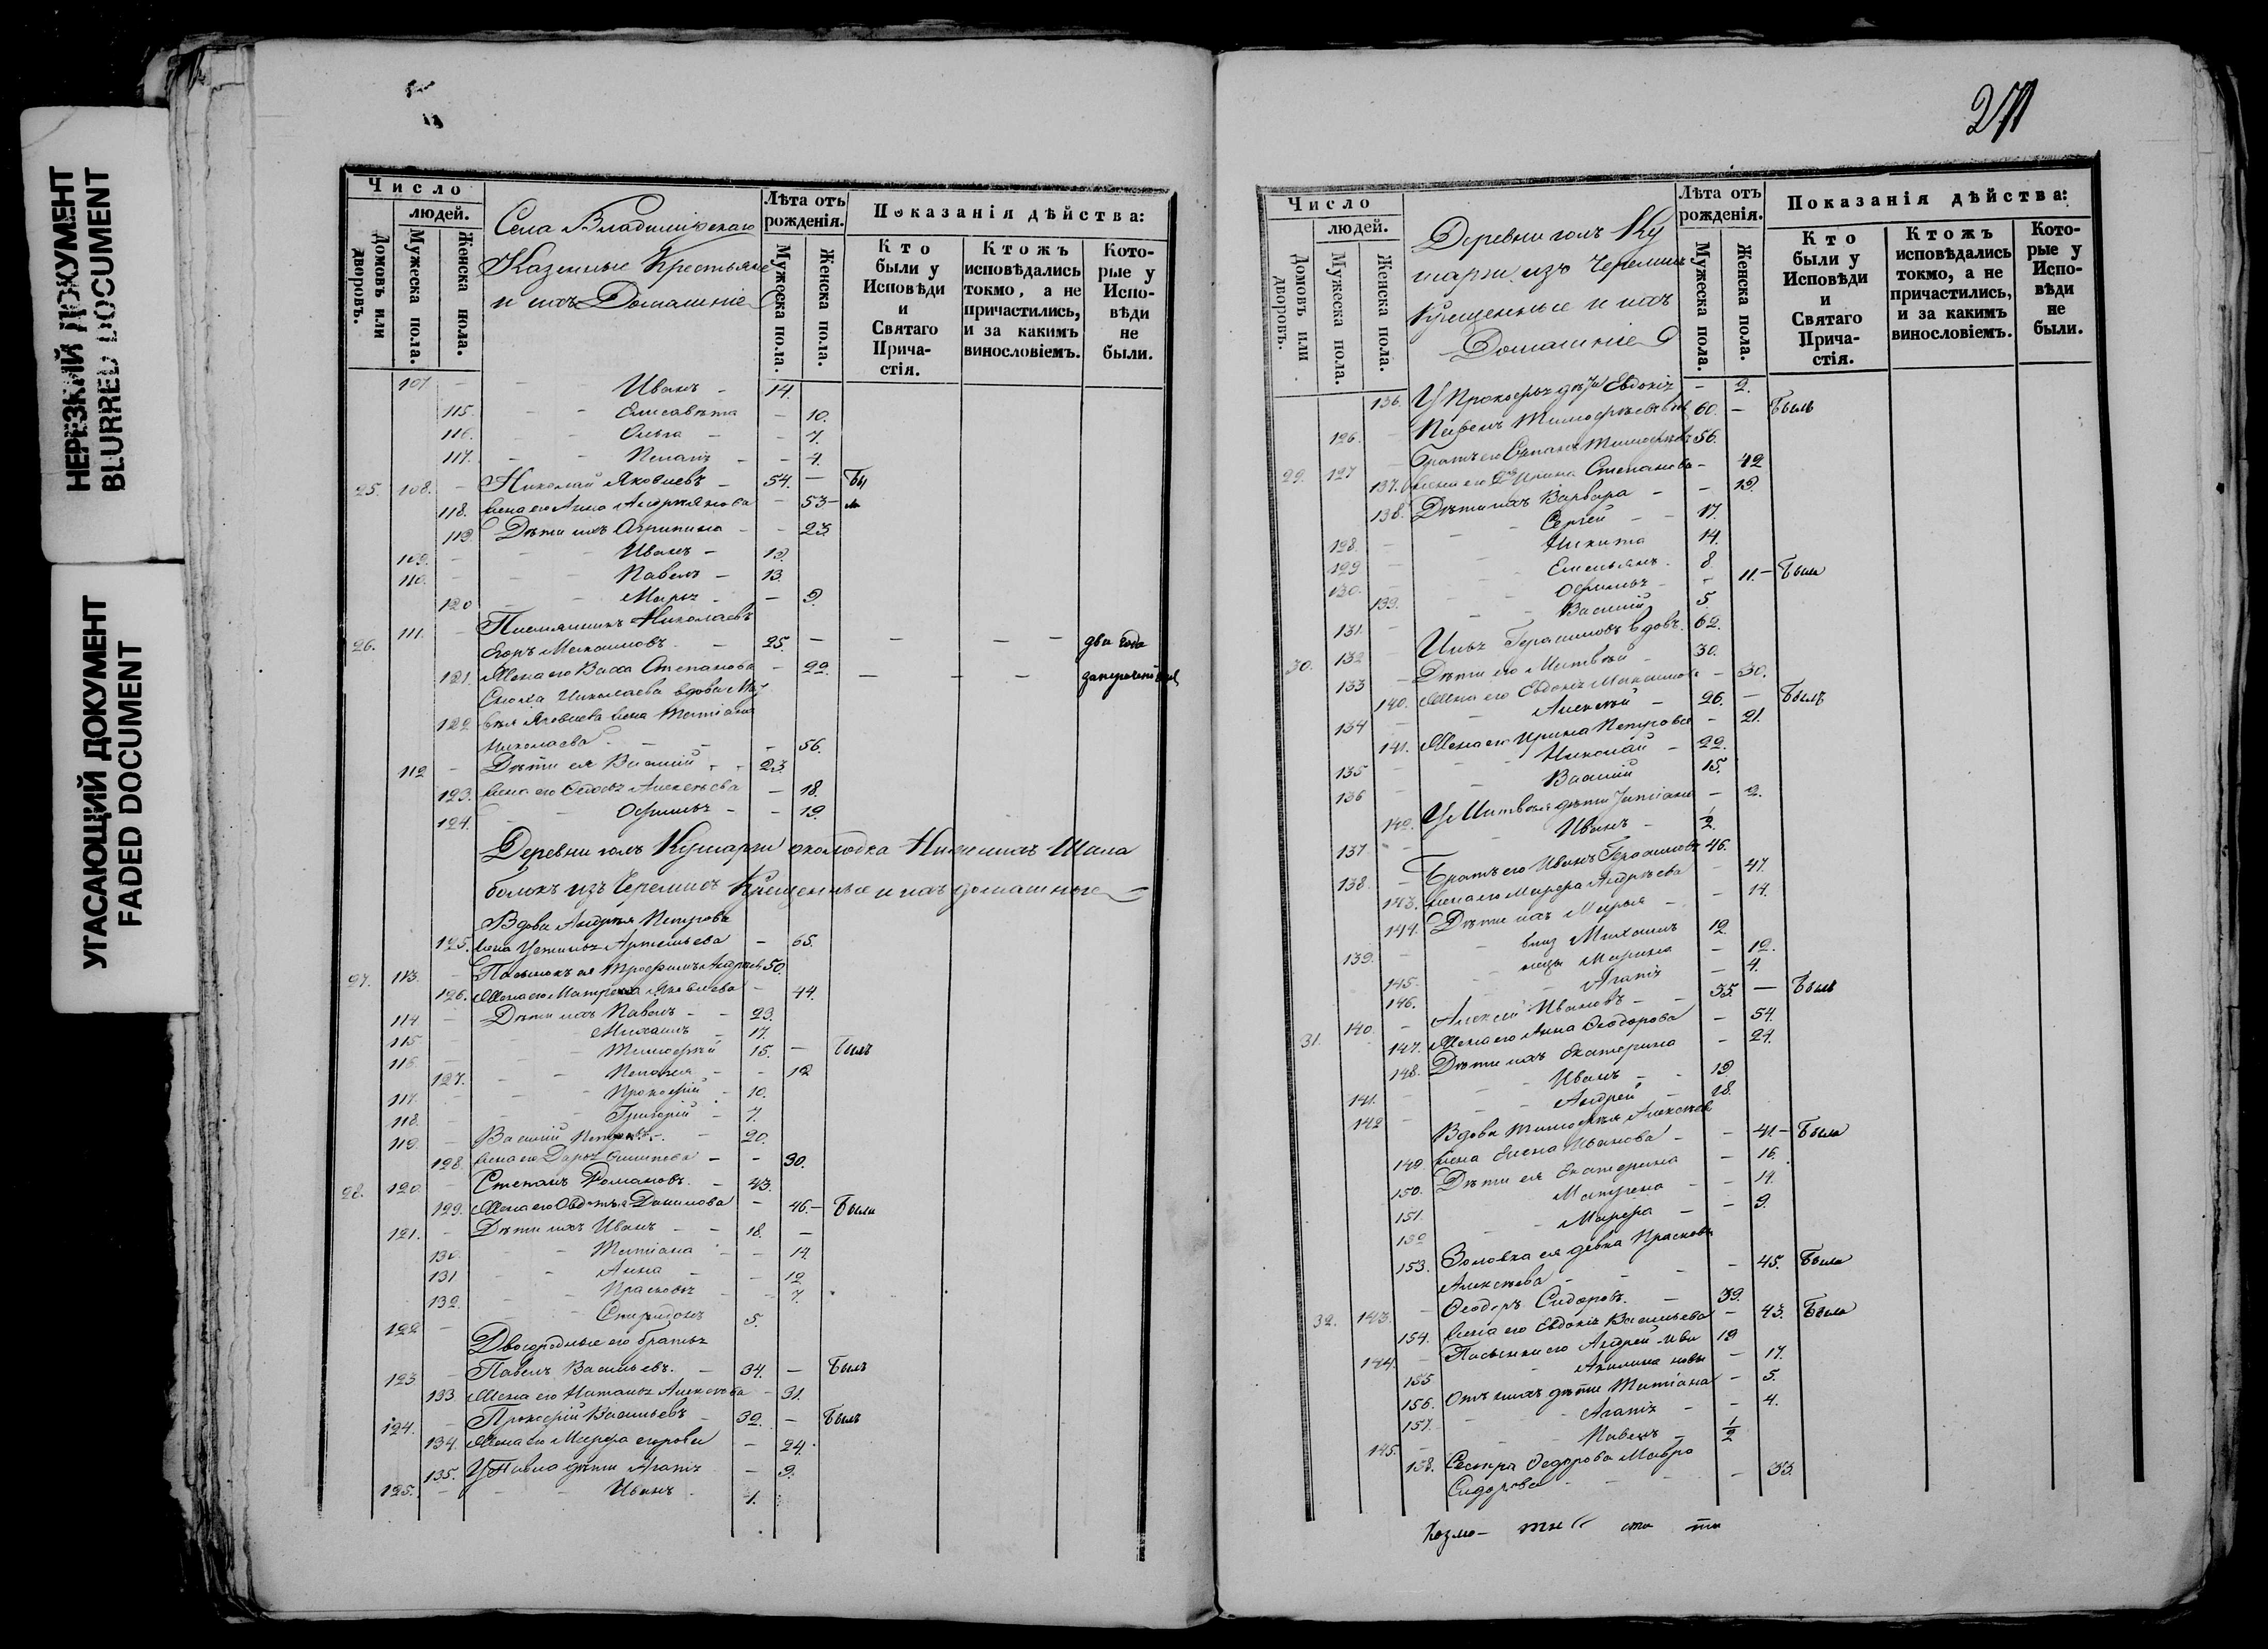 НЕРЕЗКИЙ ДОКУМЕНТ
BLURRED DOCUMENT
УГАСАЮЩИЙ ДОКУМЕНТ
FADED DOCUMENT
Число
людей.
Домовъ или дворовъ.
Мужеска пола.
Женска пола.
Села Владимірскаго
Казенные Крестьяне
и ихъ Домашніе
Лѣта отъ рожденія.
Мужеска пола.
Женска пола.
Показанія дѣйства:
Кто были у Исповѣди и Святаго Причастія.
Ктожъ исповѣдались токмо, а не причастились, и за какимъ винословіемъ.
Которые у Исповѣди не были.
107 - - Иванъ - 14.
115. - - Елисавета - 10.
116. - - Ольга - - 7.
117. - - - - 4.
25. 108. - Николай Яковлевъ - 54. - Бы
118. жена его Анна Андреянова - 53 - л
119. Дѣти ихъ Агрипина - - 23
109. - - - Иванъ - 19.
110. - - - Павелъ - 13.
120 - - Марья - - 9.
26. 111. - Племянникъ Николаевъ
Егоръ - 25. - - - - два года
121. Жена его Васса Степанова - 22. - - -
Сноха Николаева вдова
122 Яковлева жена Татіана
Николаева - - - - 56.
112 - Дѣти ея Василій - - 23
123. жена его Алексѣева - 18.
124. - - Офимья - - 19.
Деревни Кушарги околодка Нижнихъ Шала
болокъ изъ Черемисъ Крещенные и ихъ домашные
Вдова Андрея Петрова
125. жена Устинья Артемьева - 65.
27. 113. - Пасынокъ ея Трофимъ Андреевъ 50.
126. Жена его Матрена Яковлева - 44.
114 - Дѣти ихъ Павелъ - - 23.
115 - - - Михаилъ - 17.
116. - - - Тимофей 15. - Былъ
127. - - Пелагея - - 12
117. - - - Прокофій - 10.
118. - - - Григорій - 7.
119. - Василій - 20.
128. жена его Дарья - - 30.
28. 120. - Степанъ Романовъ. - 43.
129. Жена его Овдотья Данилова - 46. - Была
121. - Дѣти ихъ Иванъ - - 18. -
130. - - Татіана - - 14.
131 - - Анна - - 12
132. - - Прасковья - - 7.
122 - - Спиридонъ 5.
Двоюродные его братья
123 - Павелъ Васильевъ. - 34. - Былъ
133 Жена его Наталья Алексѣева - 31.
124. - Прокофій Васильевъ - 32. - Былъ
134. Жена его Марфа егорова - 24.
135. У Павла дѣти Агапія - 9.
125. - - - Иванъ - 1.
271
Число
людей.
Домовъ или дворовъ.
Мужеска пола.
Женска пола.
Деревни Ку
шарги изъ Черемисъ
Крещенные и ихъ
Домашніе
Лѣта отъ рожденія.
Мужеска пола.
Женска пола.
Показанія дѣйства:
Кто были у Исповѣди и Святаго Причастія.
Ктожъ исповѣдались токмо, а не причастились, и за какимъ винословіемъ.
Которые у Исповѣди не были.
136. У Прокофья Евдокія - 2.
126. - Павелъ Тимофеевъ 60. - Былъ
29. 127 - Братъ его Степанъ Тимофеевъ 56.
137. жена его Ирина Степанова - 42
138. Дѣти ихъ Варвара - - 19.
128. - - Сергей - - 17.
129 - - Никита 14.
130. - - Емельянъ. 8.
139. - - Офимья - - 11. - Была
131. - - Василій 5
30. 132 - Илья Герасимовъ вдовъ. 62.
133 - Дѣти его Матвѣй - 30.
140. Жена его Евдокія Максимова - 30.
134 - - Алексѣй - 26. - Былъ
141. Жена его Ирина Петрова - 21.
135 - - Николай - 22.
136 - - Василій 15.
142. У Матвѣя дѣти Татіана - 2.
137 - - Иванъ - 1/2.
138. - Братъ его Иванъ Герасимовъ 46.
143. жена его Марфа Андреева - 47.
144. Дѣти ихъ Марья - - 14.
139. - - близ Михаилъ 12.
145. - - нецы Марина - 12.
146. - - Агапія - 4.
31. 140. - Алексѣй Ивановъ - - 55. - Былъ
147. Жена его Анна Ѳеодорова - 54.
148. Дѣти ихъ Екатерина - 24.
141. - - Иванъ - - 19
142 - - Андрей - 18.
Вдова Тимофея Алексѣева
149. жена Елена Иванова - - 41 - Была
150. Дѣти ея Екатерина - 16.
151. Матрена - - 14.
152 - - Марфа - - 9.
153. Золовка ея девка Прасковья
Алексѣева - - - 45. Была
32. 143. - Ѳеодоръ Сидоровъ. - 39.
154. жена его Евдокія Васильева - 43. Была
144. - Пасынки его Андрей Ива 19
155 - Акилина новы - 17.
156. Отъ нихъ дѣти Татіана - 5.
157. - - Агапія - - 4.
145. - - - Павелъ - 1/2
158. Сестра Ѳедорова Мавра
Сидорова - - - - 33.